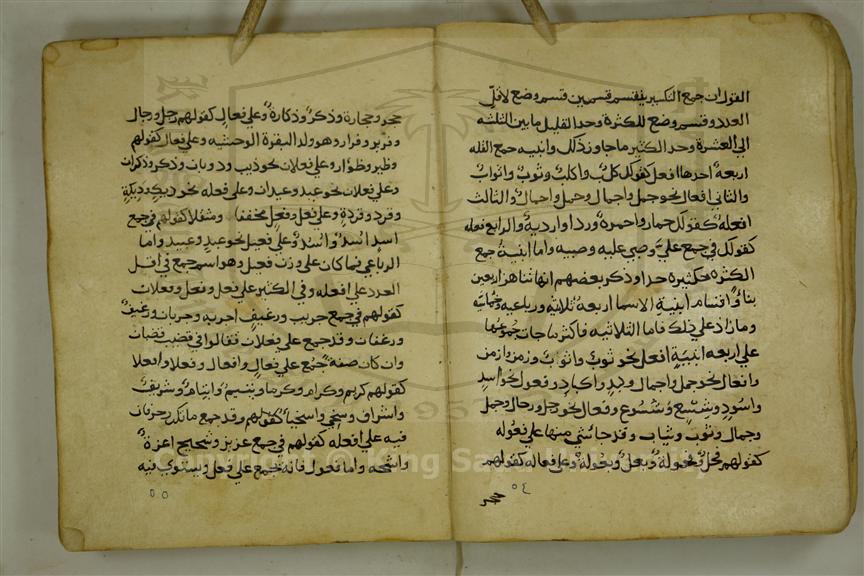 القول ان جمع التكسير ينقسم قسمين قسم وضع لاقل
العدد وقسم وضع للكثرة وحد القليل ما بين الثلثه
الى العشرة وحد الكثير ما جاوز ذلك وابنيه جمع القله
اربعة احدها افعل كقولك كلب واكلب وثوب واثوب
والثانى افعال نحو جمل واجمال وحمل واحمال والثالث
افعلة كقولك حمار واحمرة وردا واردية والرابع فعله
كقولك في جمع علي وصبي عليه وصبيه واما ابنية جمع
الكثره فكثيره جدا وذكر بعضهم انها تناهز اربعين
بناء واقسام ابنية الاسما اربعة ثلاثيه ورباعيه وخماسيه
وما زاد علي ذلك فاما الثلاثيه فاكثر ما جات جموعها
علي اربعه ابنية افعل نحو ثوب واثوب وزمن وازمن
وافعال نحو جمل واجمال وكبد واكباد وفعول نحو اسد
واسود وشسع وشسوع وفعال نحو رجل ورجال وجمل
وجمال وثوب وثياب وقد جا شي منها علي فعوله
كقولهم فحل وفحولة وبعل وبعولة وعلى فعاله كقولهم
٥٤
حجر وحجارة وذكر وذكارة وعلي فعال كقولهم رجل ورجال
وفرير وفرار وهو ولد البقرة الوحشيه وعلي فعال كقولهم
وظير وظؤار وعلي فعلان نحو ذيب وذوبان وذكر وذكران
وعلي فعلان نحو عبد وعبدان وعلى فعله نحو ديك وديكة
وقرد وقردة وعلي فعل وفعل مخففا ومثقلا كقولهم في جمع
اسد اسد واسد وعلي فعيل نحو عبد وعبيد واما
الرباعي فما كان علي وزن فعيل وهو اسم جمع في اقل
العدد علي افعله وفي الكثير علي فعل وفعل وفعلان
كقولهم في جمع جريب ورغيف اجربه وجربان ورغف
ورغفان وقد جمع علي فعلان فقالوا في قضيب قضبان
وان كان صفة جمع علي فعال وافعال وفعلا وافعلا
كقولهم كريم وكرام وكرما ويتيم وايتام وشريف
واشراف وسخي واسخيا كقولهم وقد جمع ما تكرر حرفان
فيه علي افعله كقولهم في جمع عزيز وشحيح اعزة
واشحه واما فعول فانه يجمع علي فعل ويستوي فيه
٥٥